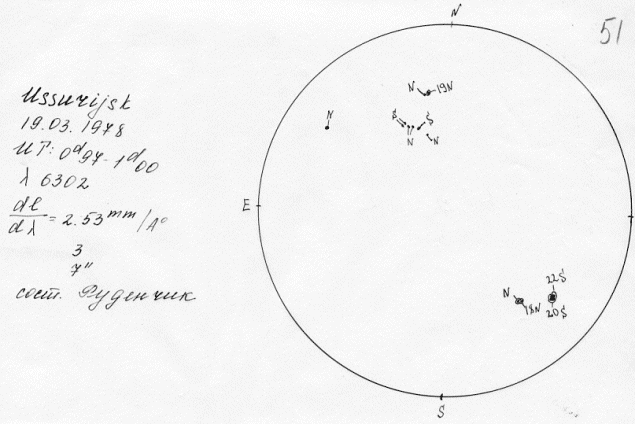 51
Ussurijsk
19.03.1978
UT: 0ᵈ97-1ᵈ00
λ 6302
dl/dλ = 2.53 mm/A°
3
7"
сост. Руденчик
N
N 19N
N
S S
N N
E
22S
N 18N
20S
S